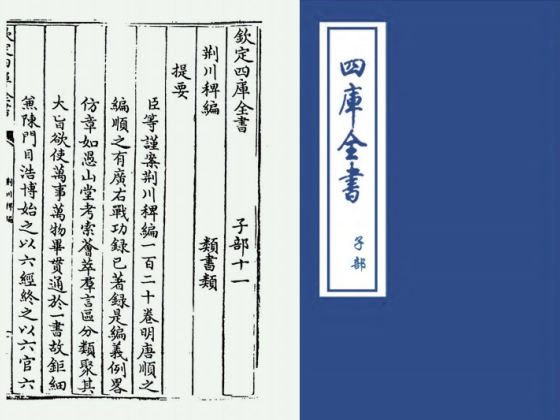 欽定四庫全書　子部十一
荆川稗編　類書類
提要
臣等謹案荆川稗編一百二十卷明唐順之
編順之有廣右戰功録已著録是編義例畧
仿章如愚山堂考索薈萃羣言區分類聚其
大旨欲使萬事萬物畢貫通於一書故鉅細
兼陳門目浩博始之以六經終之以六官六
荆川稗編
四庫全書
子部